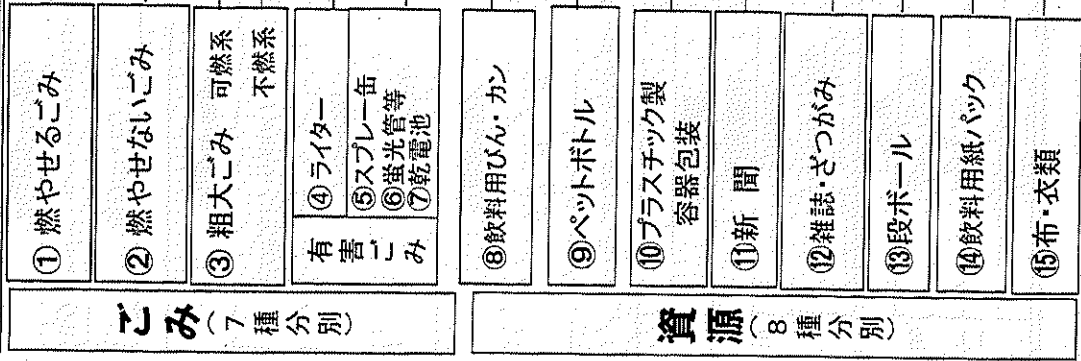 ごみ(7種分別)
①燃やせるごみ
②燃やせないごみ
③粗大ごみ 可燃系
不燃系
有害ごみ
④ライター
⑤スプレー缶
⑥蛍光管等
⑦乾電池
資源(8種分別)
⑧飲料用びん・カン
⑨ペットボトル
⑩プラスチック製
容器包装
⑪新 聞
⑫雑誌・ざつがみ
⑬段ボール
⑭飲料用紙パック
⑮布・衣類